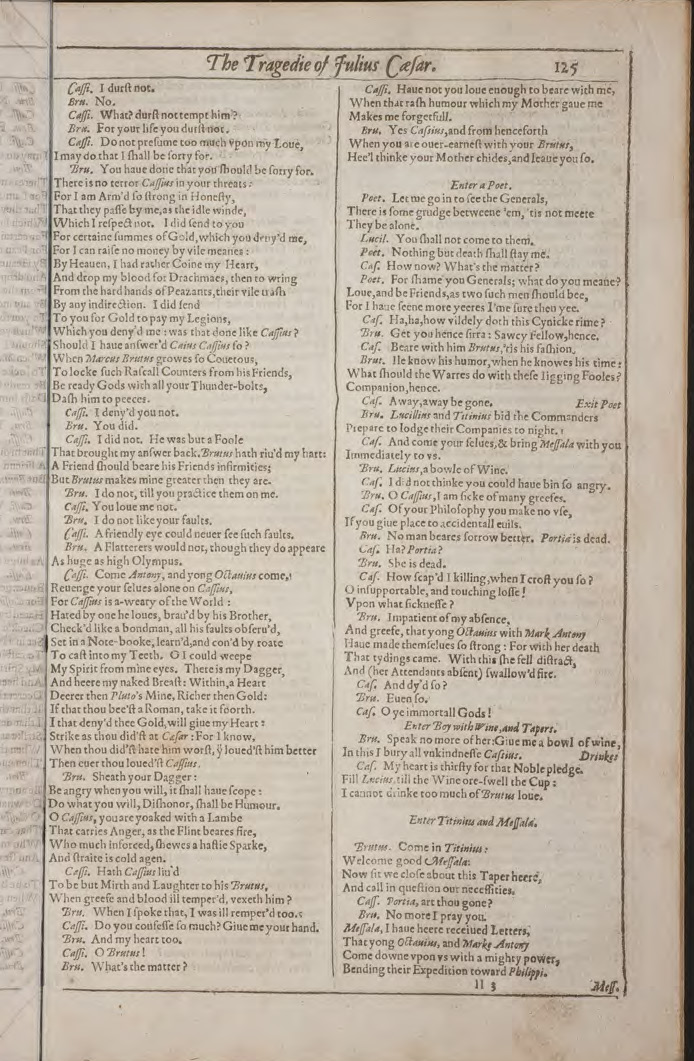 The Tragedie of Julius Cæsar. 125
Cassi. I durst not.
Bru. No.
Cassi. What? durst not tempt him?
Bru. For your life you durst not.
Cassi. Do not presume too much vpon my Loue,
I may do that I shall be sorry for.
Bru. You haue done that you should be sorry for.
There is no terror Cassius in your threats:
For I am Arm'd so strong in Honesty,
That they passe by me, as the idle winde,
Which I respect not. I did send to you
For certaine summes of Gold, which you deny'd me,
For I can raise no money by vile meanes:
By Heauen, I had rather Coine my Heart,
And drop my blood for Drachmaes, then to wring
From the hard hands of Peazants, their vile trash
By any indirection. I did send
To you for Gold to pay my Legions,
Which you deny'd me: was that done like Cassius?
Should I haue answer'd Caius Cassius so?
When Marcus Brutus growes so Couetous,
To locke such Rascall Counters from his Friends,
Be ready Gods with all your Thunder-bolts,
Dash him to peeces.
Cassi. I deny'd you not.
Bru. You did.
Cassi. I did not. He was but a Foole
That brought my answer back. Brutus hath riu'd my hart:
A Friend should beare his Friends infirmities;
But Brutus makes mine greater then they are.
Bru. I do not, till you practice them on me.
Cassi. You loue me not.
Bru. I do not like your faults.
Cassi. A friendly eye could neuer see such faults.
Bru. A Flatterers would not, though they do appeare
As huge as high Olympus.
Cassi. Come Antony, and yong Octauius come,
Reuenge your selues alone on Cassius,
For Cassius is a-weary of the World:
Hated by one he loues, brau'd by his Brother,
Check'd like a bondman, all his faults obseru'd,
Set in a Note-booke, learn'd, and con'd by roate
To cast into my Teeth. O I could weepe
My Spirit from mine eyes. There is my Dagger,
And heere my naked Breast: Within, a Heart
Deerer then Pluto's Mine, Richer then Gold:
If that thou bee'st a Roman, take it foorth.
I that deny'd thee Gold, will giue my Heart:
Strike as thou did'st at Cæsar: For I know,
When thou did'st hate him worst, ẙ loued'st him better
Then euer thou loued'st Cassius.
Bru. Sheath your Dagger:
Be angry when you will, it shall haue scope:
Do what you will, Dishonor, shall be Humour.
O Cassius, you are yoaked with a Lambe
That carries Anger, as the Flint beares fire,
Who much inforced, shewes a hastie Sparke,
And straite is cold agen.
Cassi. Hath Cassius liu'd
To be but Mirth and Laughter to his Brutus,
When greefe and blood ill temper'd, vexeth him?
Bru. When I spoke that, I was ill temper'd too.
Cassi. Do you confesse so much? Giue me your hand.
Bru. And my heart too.
Cassi. O Brutus!
Bru. What's the matter?
Cassi. Haue not you loue enough to beare with me,
When that rash humour which my Mother gaue me
Makes me forgetfull.
Bru. Yes Cassius, and from henceforth
When you are ouer-earnest with your Brutus,
Hee'l thinke your Mother chides, and leaue you so.
Enter a Poet.
Poet. Let me go in to see the Generals,
There is some grudge betweene 'em, 'tis not meete
They be alone.
Lucil. You shall not come to them.
Poet. Nothing but death shall stay me.
Cas. How now? What's the matter?
Poet. For shame you Generals; what do you meane?
Loue, and be Friends, as two such men should bee,
For I haue seene more yeeres I'me sure then yee.
Cas. Ha, ha, how vildely doth this Cynicke rime?
Bru. Get you hence sirra: Sawcy Fellow, hence.
Cas. Beare with him Brutus, 'tis his fashion.
Brut. Ile know his humor, when he knowes his time:
What should the Warres do with these Iigging Fooles?
Companion, hence.
Cas. Away, away be gone. Exit Poet
Bru. Lucillius and Titinius bid the Commanders
Prepare to lodge their Companies to night.
Cas. And come your selues, & bring Messala with you
Immediately to vs.
Bru. Lucius, a bowle of Wine.
Cas. I did not thinke you could haue bin so angry.
Bru. O Cassius, I am sicke of many greefes.
Cas. Of your Philosophy you make no vse,
If you giue place to accidentall euils.
Bru. No man beares sorrow better. Portia is dead.
Cas. Ha? Portia?
Bru. She is dead.
Cas. How scap'd I killing, when I crost you so?
O insupportable, and touching losse!
Vpon what sicknesse?
Bru. Impatient of my absence,
And greefe, that yong Octauius with Mark Antony
Haue made themselues so strong: For with her death
That tydings came. With this she fell distract,
And (her Attendants absent) swallow'd fire.
Cas. And dy'd so?
Bru. Euen so.
Cas. O ye immortall Gods!
Enter Boy with Wine, and Tapers.
Bru. Speak no more of her: Giue me a bowl of wine,
In this I bury all vnkindnesse Cassius. Drinkes
Cas. My heart is thirsty for that Noble pledge.
Fill Lucius, till the Wine ore-swell the Cup:
I cannot drinke too much of Brutus loue.
Enter Titinius and Messala.
Brutus. Come in Titinius:
Welcome good Messala:
Now sit we close about this Taper heere,
And call in question our necessities.
Cass. Portia, art thou gone?
Bru. No more I pray you.
Messala, I haue heere receiued Letters,
That yong Octauius, and Marke Antony
Come downe vpon vs with a mighty power,
Bending their Expedition toward Philippi.
ll 3 Mess.